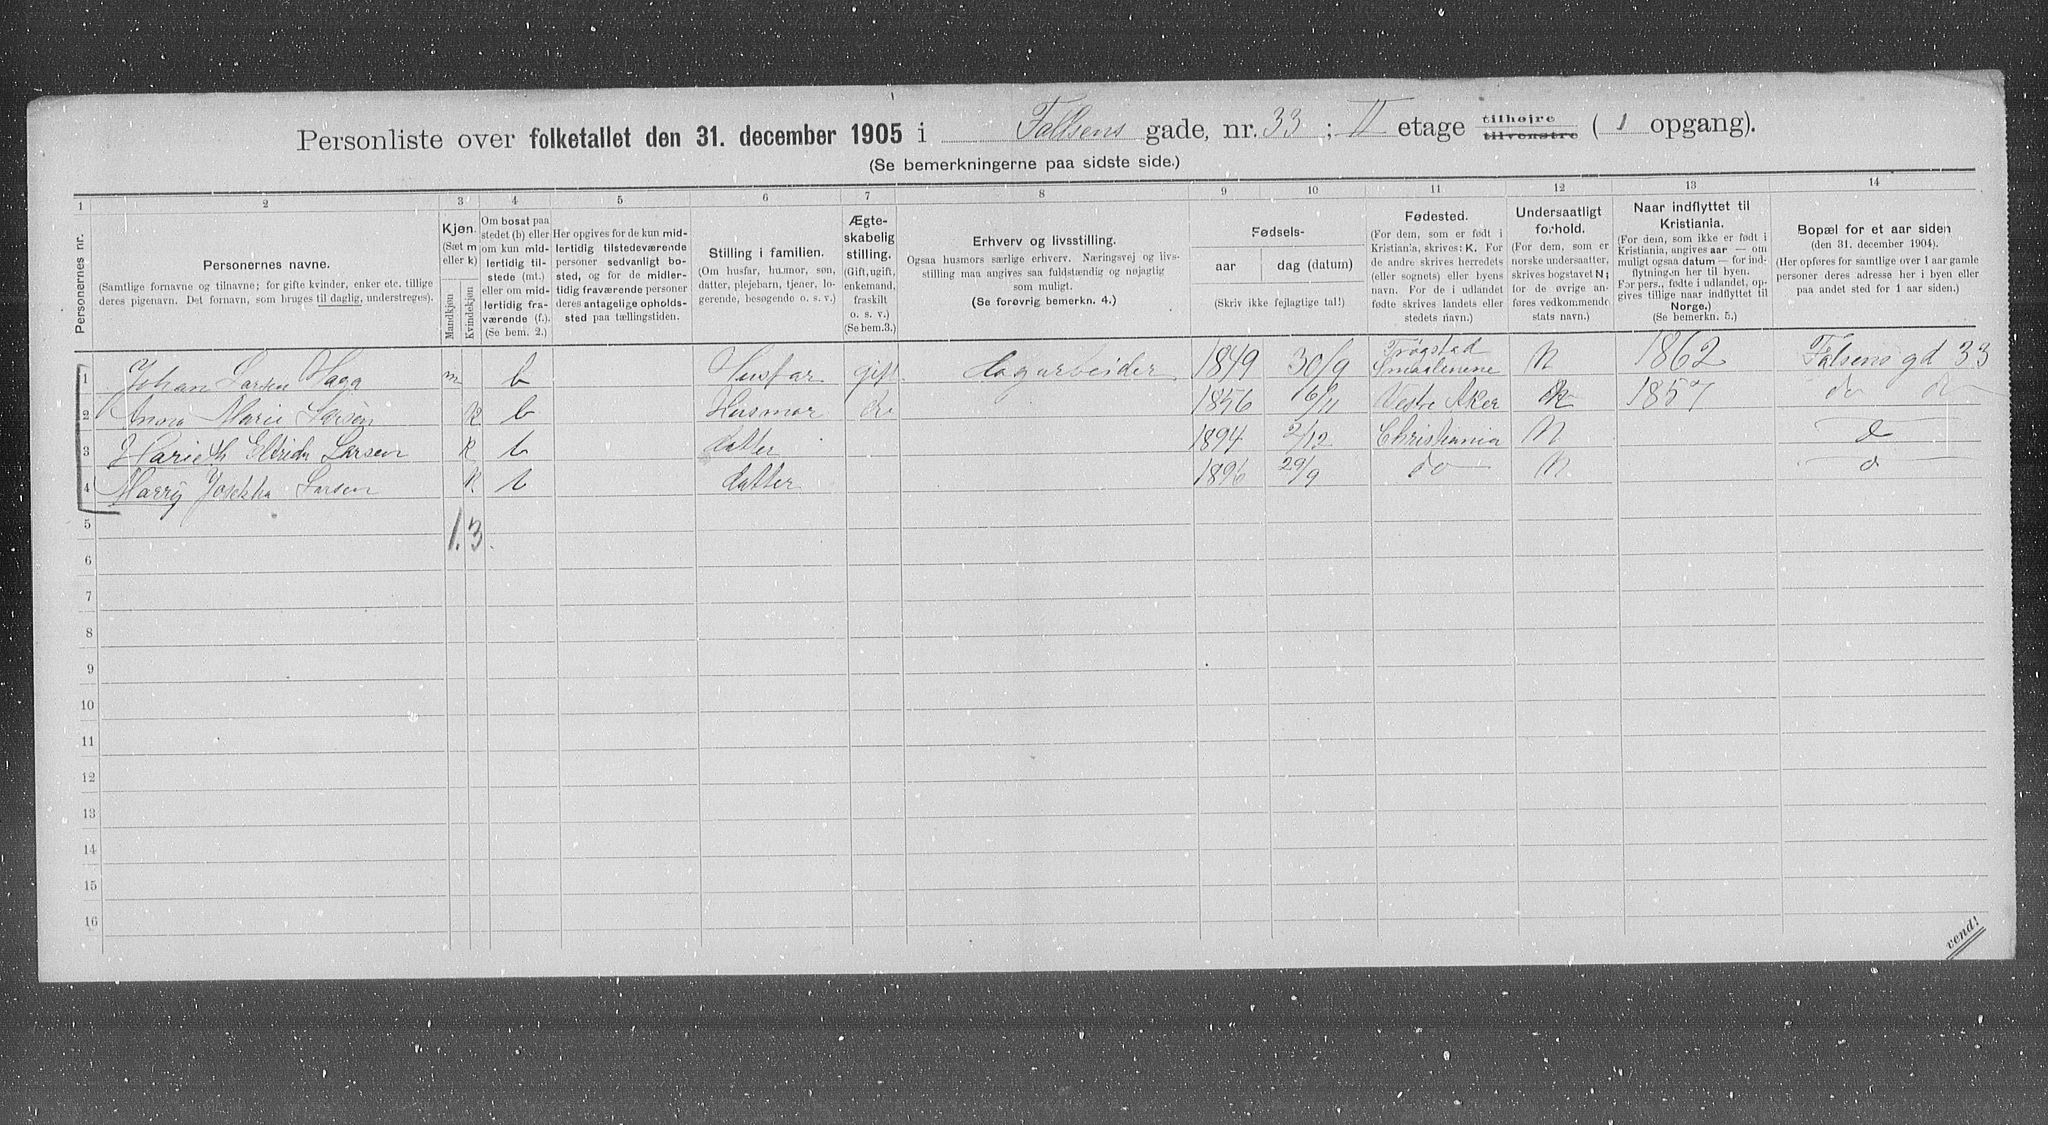 Personliste over folketallet den 31. december 1905 i Falsens gade, nr. 33 ; II etage tilhøjre tilvenstre ( 1 opgang).
(Se bemerkningerne paa sidste side.)
1 2 3 4 5 6 7 8 9 10 11 12 13 14
Personernes nr.
Personernes navne.
(Samtlige fornavne og tilnavne; for gifte kvinder, enker etc. tillige deres pigenavn. Det fornavn, som bruges til daglig, understreges).
Kjøn.
(Sæt m eller k)
Mandkjøn
Kvindekjøn
Om bosat paa stedet (b) eller om kun midlertidig tilstede (mt.) eller om midlertidig fraværende (f.). (Se bem. 2.)
Her opgives for de kun midlertidig tilstedeværende personer sedvanligt bosted, og for de midlertidig fraværende personer deres antagelige opholdssted paa tællingstiden.
Stilling i familien.
(Om husfar, husmor, søn, datter, plejebarn, tjener, logerende, besøgende o. s. v.)
Ægteskabelig stilling.
(Gift, ugift, enkemand, fraskilt o. s. v.) (Se bem. 3.)
Erhverv og livsstilling.
Ogsaa husmors særlige erhverv. Næringsvej og livsstilling maa angives saa fuldstændig og nøjagtig som muligt.
(Se forøvrig bemerkn. 4.)
Fødsels-
aar dag (datum)
(Skriv ikke fejlagtige tal!)
Fødested.
(For dem, som er født i Kristiania, skrives: K. For de andre skrives herredets (eller sognets) eller byens navn. For de i udlandet fødte skrives landets eller stedets navn.)
Undersaatligt forhold.
(For dem, som er norske undersaatter, skrives bogstavet N; for de øvrige anføres vedkommende stats navn.)
Naar indflyttet til Kristiania.
(For dem, som ikke er født i Kristiania, angives aar — om muligt ogsaa datum — for indflytningen her til byen. For pers., fødte i udlandet, opgives tillige naar indflyttet til Norge.)
(Se bemerkn. 5.)
Bopæl for et aar siden
(den 31. december 1904).
(Her opføres for samtlige over 1 aar gamle personer deres adresse her i byen eller paa andet sted for 1 aar siden.)
1 Johan Larsen Haga m b Husfar gift. dagarbeider 1849 30/9 Trøgstad Smaalenene N 1862 Falsens gd 33
2 Anna Marie Larsen K b Husmor do 1856 16/11 Vestre Aker 1857 do do
3 Larsen K b datter 1894 2/12 Christiania N do
4 Marry Larsen K b datter 1896 29/9 do N
5
1. 3.
6
7
8
9
10
11
12
13
14
15
16
vend!